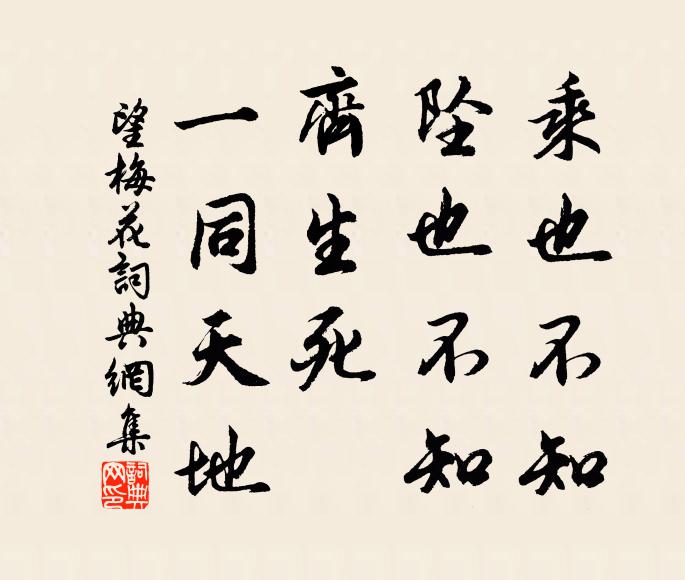 乘也不知
坠也不知
齊生死
一同天地
望梅花詞典網集
詞典
网印